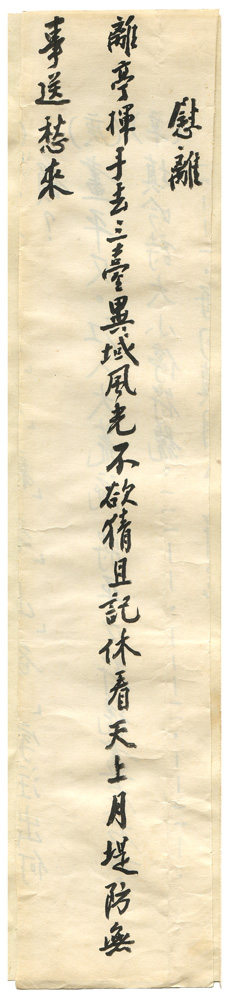 慰離
離亭揮手去三臺異域風光不欲猜且記休看天上月堤防無
事送愁來